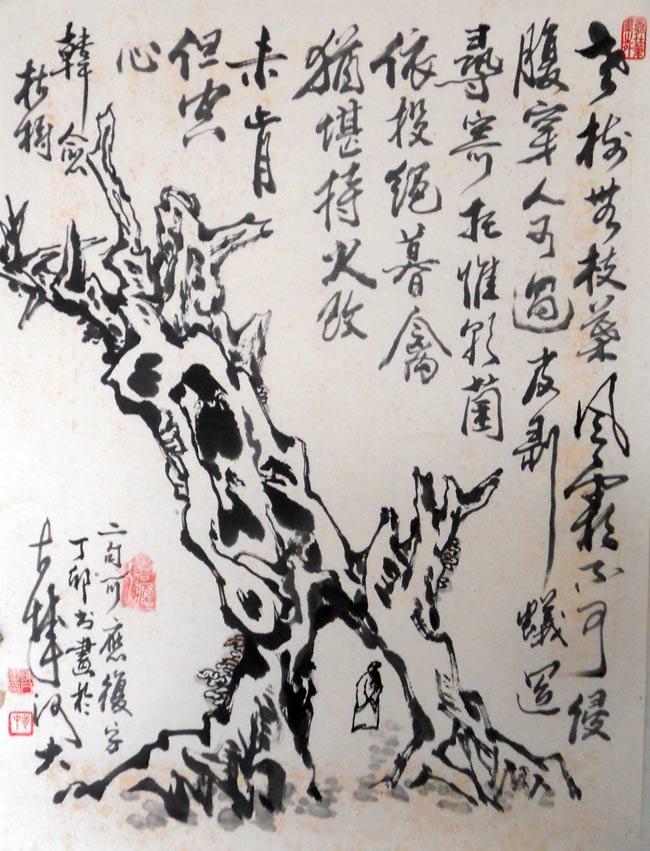 老樹無枝葉風霜不可侵
腹穿人可過皮剥蟻還
尋寄托惟朝菌
依投絕暮禽
猶堪持火改
未肯
但空
心
韓愈
枯樹
二句可應復字
丁卯书畫於
河大